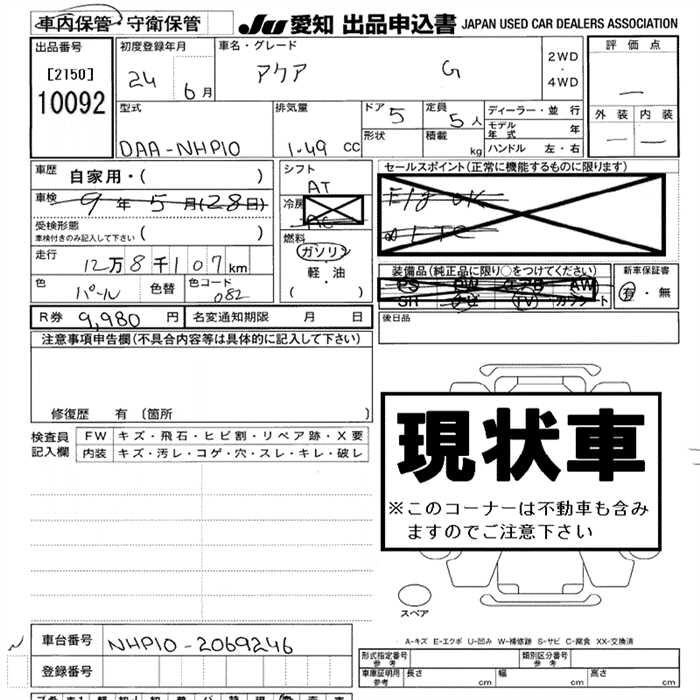 車内保管・守衛保管 JU 愛知 出品申込書 JAPAN USED CAR DEALERS ASSOCIATION
出品番号 初度登録年月 車名・グレード 評価点
[2150] 24 6月 アクア G 2WD・4WD
10092 —
型式 排気量 ドア 5 定員 5人 ディーラー・並行 外装 内装
DAA-NHP10 1.49 cc 形状 積載 kg モデル年式 年 — —
ハンドル 左・右
車歴 自家用・( ) シフト AT セールスポイント(正常に機能するものに限ります)
車検 9年5月(28日) 冷房 AC E/g OK
受検形態 車検付きのみ記入して下さい ( ) 燃料
走行 12万8千107km ガソリン 軽・油 ( ) 装備品(純正品に限り○をつけてください) 新車保証書
色 パール 色替 色コード 082 PS PW エアB AW 有・無
SH ナビ TV カワシート
R券 9,980円 名変通知期限 月 日 後日品
注意事項申告欄(不具合内容等は具体的に記入して下さい)
修復歴 有 〔箇所 〕
検査員記入欄 FW キズ・飛石・ヒビ割・リペア跡・X要
内装 キズ・汚レ・コゲ・穴・スレ・キレ・破レ
現状車
※このコーナーは不動車も含み
ますのでご注意下さい
スペア
A-キズ E-エクボ U-凹み W-補修跡 S-サビ C-腐食 XX-交換済
車台番号 NHP10-2069246 形式指定番号 参考 類別区分番号 参考
登録番号 車庫証明用 参考 長さ 幅 高さ